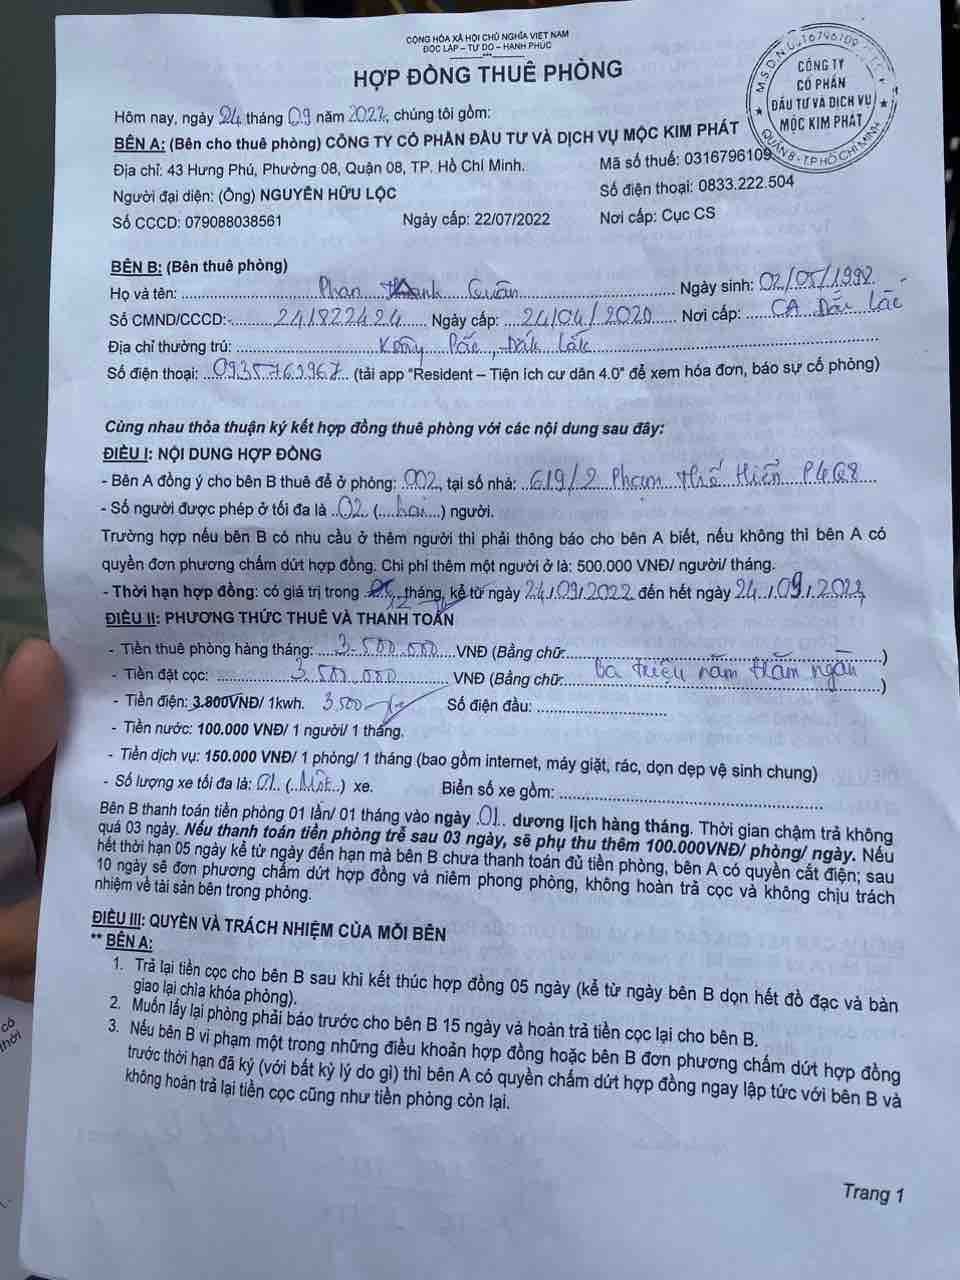 CỘNG HÒA XÃ HỘI CHỦ NGHĨA VIỆT NAM
ĐỘC LẬP – TỰ DO – HẠNH PHÚC
HỢP ĐỒNG THUÊ PHÒNG
M.S.D.N:0316796109
CÔNG TY
CỔ PHẦN
ĐẦU TƯ VÀ DỊCH VỤ
MỘC KIM PHÁT
QUẬN 8 - T.P HỒ CHÍ MINH
Hôm nay, ngày 24 tháng 09 năm 2022, chúng tôi gồm:
BÊN A: (Bên cho thuê phòng) CÔNG TY CỔ PHẦN ĐẦU TƯ VÀ DỊCH VỤ MỘC KIM PHÁT
Địa chỉ: 43 Hưng Phú, Phường 08, Quận 08, TP. Hồ Chí Minh. Mã số thuế: 0316796109
Người đại diện: (Ông) NGUYỄN HỮU LỘC Số điện thoại: 0833.222.504
Số CCCD: 079088038561 Ngày cấp: 22/07/2022 Nơi cấp: Cục CS
BÊN B: (Bên thuê phòng)
Họ và tên: Phan Thanh Quân Ngày sinh: 02/05/1998
Số CMND/CCCD: 241822424 Ngày cấp: 24/04/2020 Nơi cấp: CA Đắc Lắc
Địa chỉ thường trú: Krông Pắc, Đắk Lắk
Số điện thoại: 0935763967 (tải app "Resident – Tiện ích cư dân 4.0" để xem hóa đơn, báo sự cố phòng)
Cùng nhau thỏa thuận ký kết hợp đồng thuê phòng với các nội dung sau đây:
ĐIỀU I: NỘI DUNG HỢP ĐỒNG
- Bên A đồng ý cho bên B thuê để ở phòng: 002, tại số nhà: 619/2 Phạm Thế Hiển P4Q8
- Số người được phép ở tối đa là 02 (hai) người.
Trường hợp nếu bên B có nhu cầu ở thêm người thì phải thông báo cho bên A biết, nếu không thì bên A có
quyền đơn phương chấm dứt hợp đồng. Chi phí thêm một người ở là: 500.000 VNĐ/ người/ tháng.
- Thời hạn hợp đồng: có giá trị trong 12 tháng, kể từ ngày 24/09/2022 đến hết ngày 24/09/2023
ĐIỀU II: PHƯƠNG THỨC THUÊ VÀ THANH TOÁN
- Tiền thuê phòng hàng tháng: 3.500.000 VNĐ (Bằng chữ: )
- Tiền đặt cọc: 3.500.000 VNĐ (Bằng chữ: ba triệu năm trăm ngàn )
- Tiền điện: 3.800VNĐ/ 1kwh. 3.500 Số điện đầu:
- Tiền nước: 100.000 VNĐ/ 1 người/ 1 tháng.
- Tiền dịch vụ: 150.000 VNĐ/ 1 phòng/ 1 tháng (bao gồm internet, máy giặt, rác, dọn dẹp vệ sinh chung)
- Số lượng xe tối đa là: 01 (Một) xe. Biển số xe gồm:
Bên B thanh toán tiền phòng 01 lần/ 01 tháng vào ngày 01 dương lịch hàng tháng. Thời gian chậm trả không
quá 03 ngày. Nếu thanh toán tiền phòng trễ sau 03 ngày, sẽ phụ thu thêm 100.000VNĐ/ phòng/ ngày. Nếu
hết thời hạn 05 ngày kể từ ngày đến hạn mà bên B chưa thanh toán đủ tiền phòng, bên A có quyền cắt điện; sau
10 ngày sẽ đơn phương chấm dứt hợp đồng và niêm phong phòng, không hoàn trả cọc và không chịu trách
nhiệm về tài sản bên trong phòng.
ĐIỀU III: QUYỀN VÀ TRÁCH NHIỆM CỦA MỖI BÊN
** BÊN A:
1. Trả lại tiền cọc cho bên B sau khi kết thúc hợp đồng 05 ngày (kể từ ngày bên B dọn hết đồ đạc và bàn
giao lại chìa khóa phòng).
2. Muốn lấy lại phòng phải báo trước cho bên B 15 ngày và hoàn trả tiền cọc lại cho bên B.
3. Nếu bên B vi phạm một trong những điều khoản hợp đồng hoặc bên B đơn phương chấm dứt hợp đồng
trước thời hạn đã ký (với bất kỳ lý do gì) thì bên A có quyền chấm dứt hợp đồng ngay lập tức với bên B và
không hoàn trả lại tiền cọc cũng như tiền phòng còn lại.
Trang 1
có
thời